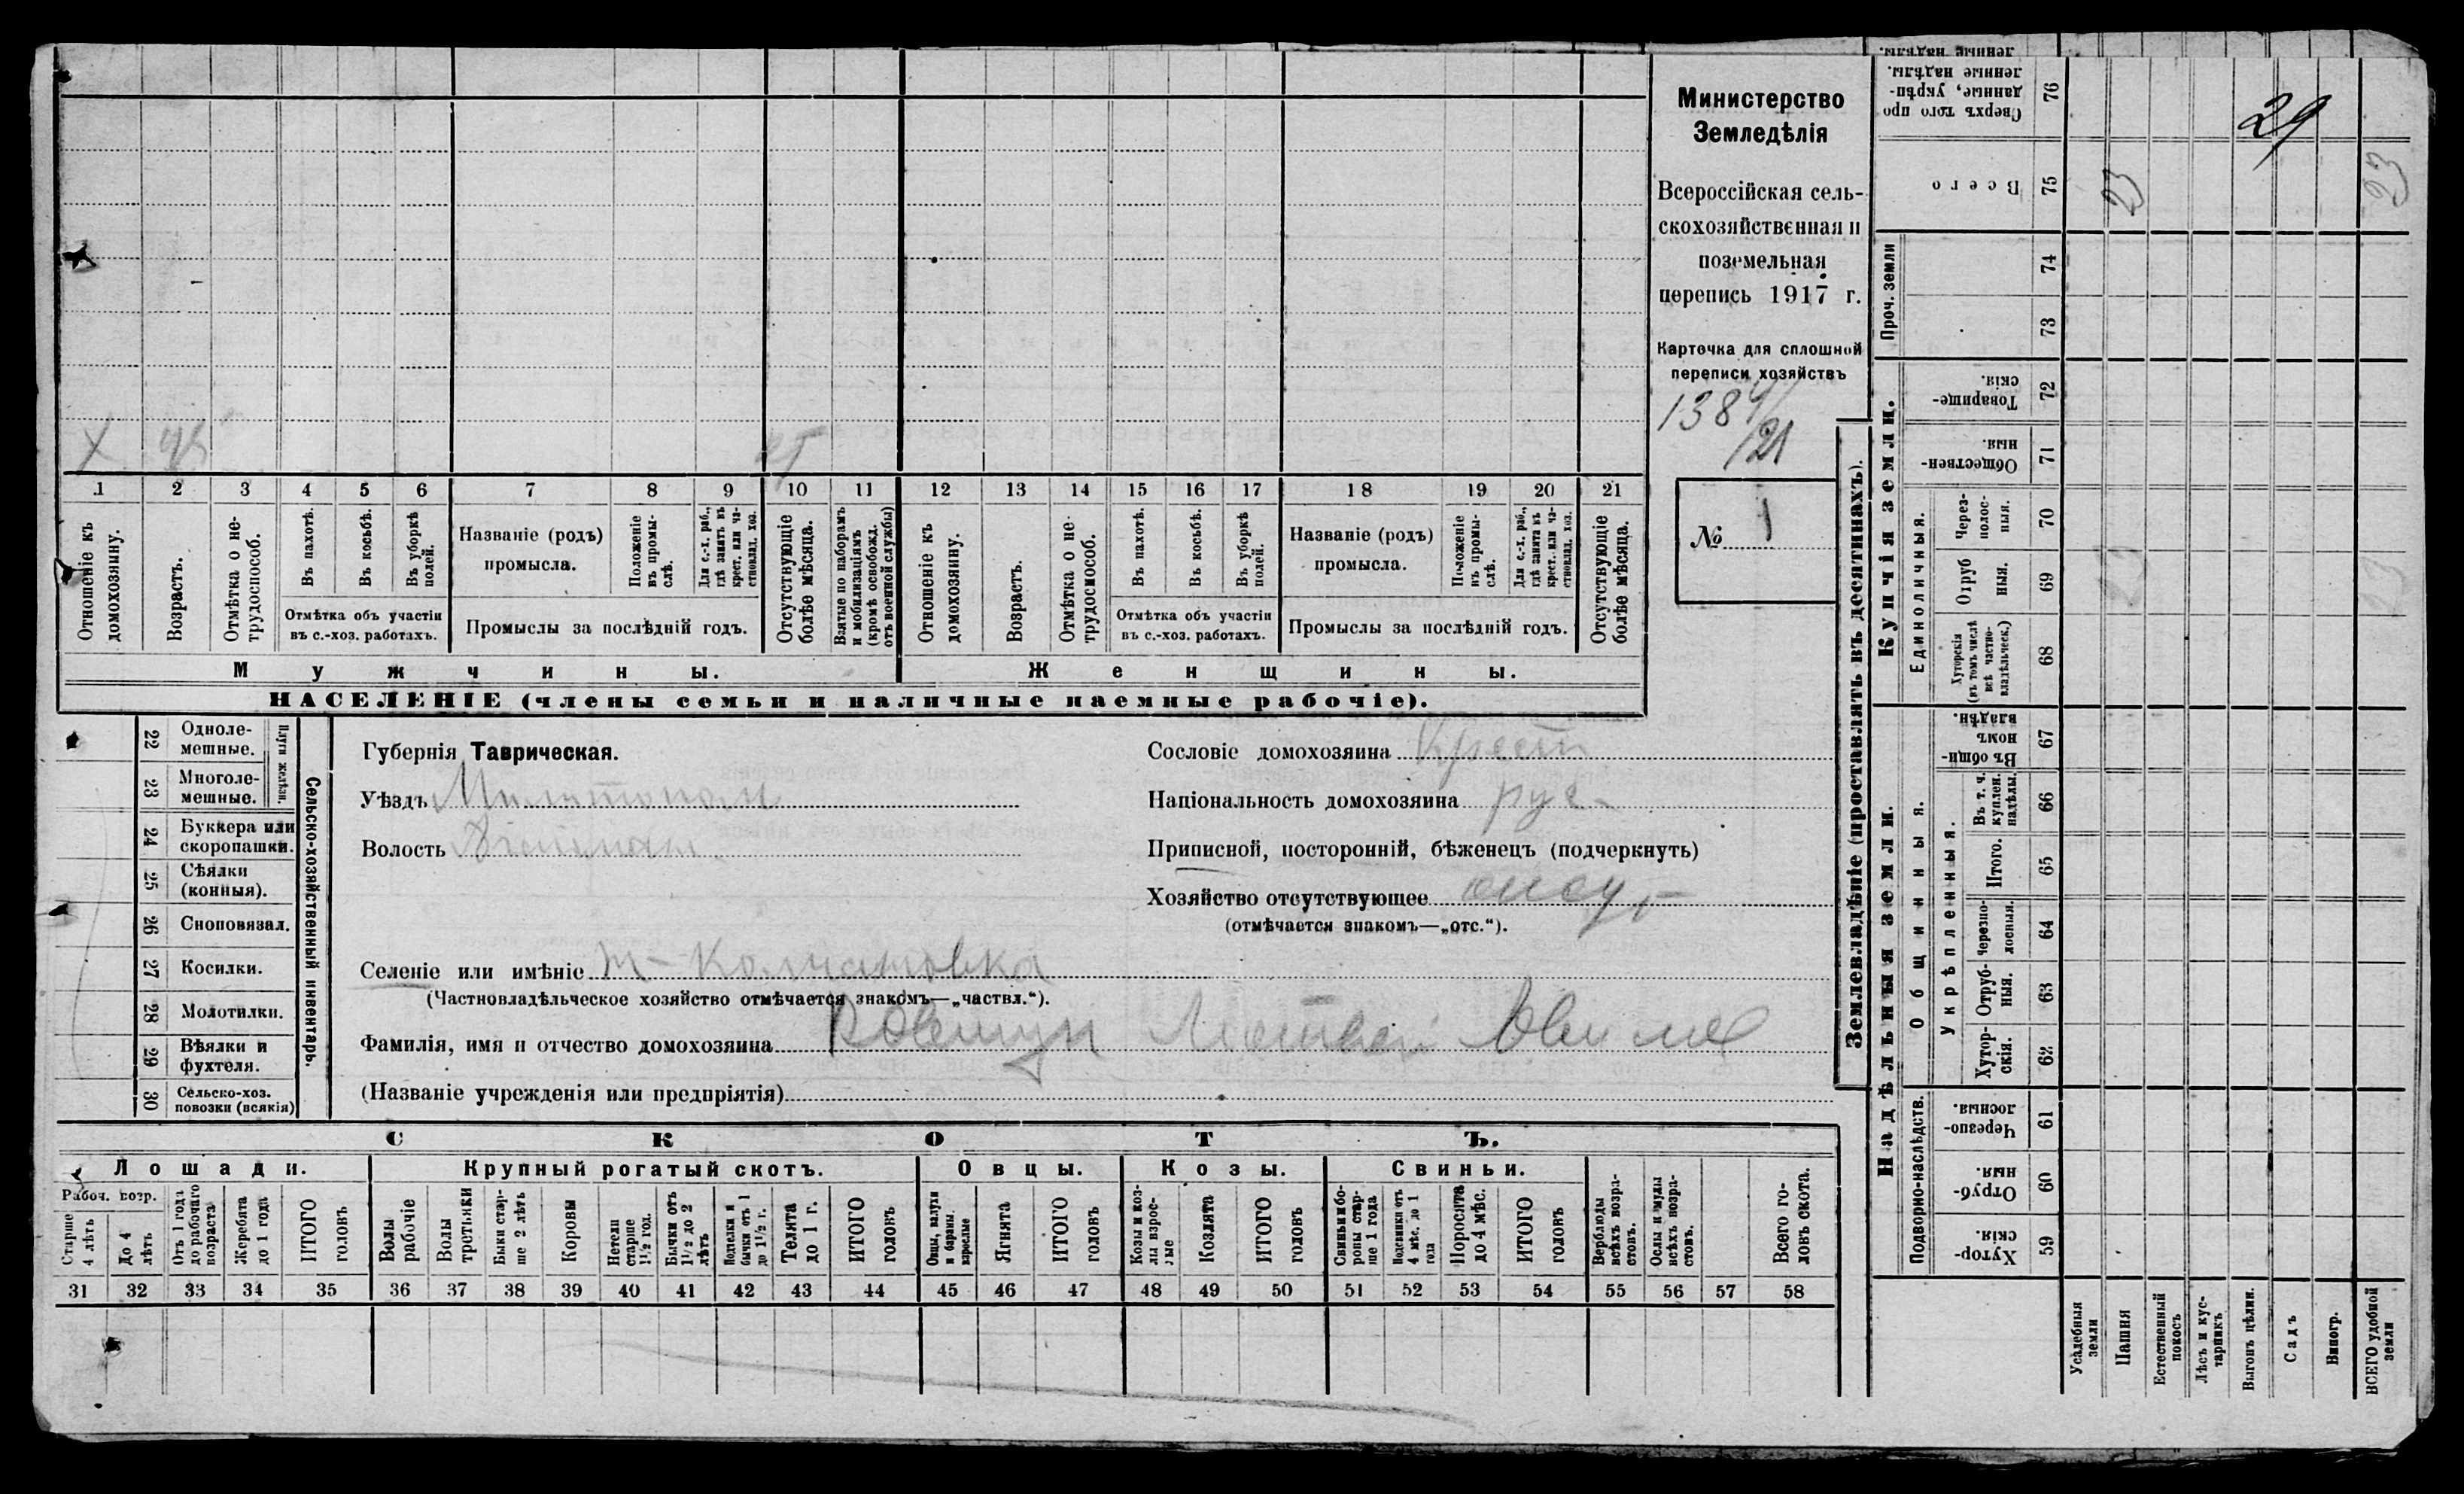 Министерство
Земледѣлія
Всероссійская сель-
скохозяйственная и
поземельная
перепись 1917 г.
Карточка для сплошной
переписи хозяйствъ
138
/21
№ 1
Х 45
1 2 3 4 5 6 7 8 9 10 11 12 13 14 15 16 17 18 19 20 21
Отношеніе къ домохозяину.
Возрастъ.
Отмѣтка о не-трудоспособ.
Въ пахотѣ.
Въ косьбѣ.
Въ уборкѣ полей.
Отмѣтка объ участіи въ с.-хоз. работахъ.
Названіе (родъ) промысла.
Положеніе въ промы-слѣ.
Для с.-х. раб., гдѣ занятъ въ крест. или ча-стновлад. хоз.
Промыслы за послѣдній годъ.
Отсутствующіе болѣе мѣсяца.
Взятые по наборамъ и мобилизаціямъ (кромѣ освобожд. отъ военной службы)
Отношеніе къ домохозяину.
Возрастъ.
Отмѣтка о не-трудоспособ.
Въ пахотѣ.
Въ косьбѣ.
Въ уборкѣ полей.
Отмѣтка объ участіи въ с.-хоз. работахъ.
Названіе (родъ) промысла.
Положеніе въ промы-слѣ.
Для с.-х. раб., гдѣ занята въ крест. или ча-стновлад. хоз.
Промыслы за послѣдній годъ.
Отсутствующіе болѣе мѣсяца.
Мужчины.
Женщины.
НАСЕЛЕНІЕ (члены семьи и наличные наемные рабочіе).
22 Одноле-мешные.
23 Многоле-мешные.
Плуги желѣзн.
24 Буккера или скоропашки.
25 Сѣялки (конныя).
26 Сноповязал.
27 Косилки.
28 Молотилки.
29 Вѣялки и фухтеля.
30 Сельско-хоз. повозки (всякія)
Сельско-хозяйственный инвентарь.
Губернія Таврическая.
Уѣздъ Мелитопол
Волость
Сословіе домохозяина Крест
Національность домохозяина рус.
Приписной, посторонній, бѣженецъ (подчеркнуть)
Хозяйство отсутствующее
(отмѣчается знакомъ—„отс.“).
Селеніе или имѣніе
(Частновладѣльческое хозяйство отмѣчается знакомъ—„частвл.“).
Фамилія, имя и отчество домохозяина Ковтун Матвей
(Названіе учрежденія или предпріятія)
СКОТЪ.
Лошади.
Крупный рогатый скотъ.
Овцы.
Козы.
Свиньи.
Рабоч. возр.
Старше 4 лѣтъ
До 4 лѣтъ
Отъ 1 года до рабочаго возраста
Жеребята до 1 года
ИТОГО головъ
Волы рабочіе
Волы третьяки
Быки стар-ше 2 лѣтъ
Коровы
Нетели старше 1½ год.
Бычки отъ 1½ до 2 лѣтъ
Подтелки и бычки отъ 1 до 1½ г.
Телята до 1 г.
ИТОГО головъ
Овцы, валухи и бараны взрослые
Ягнята
ИТОГО головъ
Козы и коз-лы взрос-лые
Козлята
ИТОГО головъ
Свиньи и бо-ровы стар-ше 1 года
Подсвинки отъ 4 мѣс. до 1 года
Поросята до 4 мѣс.
ИТОГО головъ
Верблюды всѣхъ возра-стовъ.
Ослы и мулы всѣхъ возра-стовъ.
Всего го-ловъ скота.
31 32 33 34 35 36 37 38 39 40 41 42 43 44 45 46 47 48 49 50 51 52 53 54 55 56 57 58
Землевладѣніе (проставлять въ десятинахъ).
Сверхъ того про данные, укрѣп-ленные надѣлы. 76
29
Всего 75
23 23
Проч. земли 74 73
Купчія земли.
Товарище-скія. 72
Обществен-ныя 71
Единоличныя.
Через-полос-ныя. 70
Отруб ныя. 69
23 23
Хуторскія (въ томъ числѣ всѣ частно-владѣльческ.) 68
Надѣльныя земли.
Общинныя.
Въ общи номъ владѣн. 67
Укрѣпленныя.
Въ т. ч. куплен. надѣлы. 66
Итого. 65
Черезпо-лосныя. 64
Отруб-ныя. 63
Хутор-скія. 62
Подворно-наслѣдств.
Черезпо-лосныя. 61
Отруб-ныя. 60
Хутор-скія. 59
Усадебныя земли
Пашня
Естественный покосъ
Лѣсъ и кус-тарникъ
Выгонъ цѣлин.
Садъ
Виногр.
ВСЕГО удобной земли